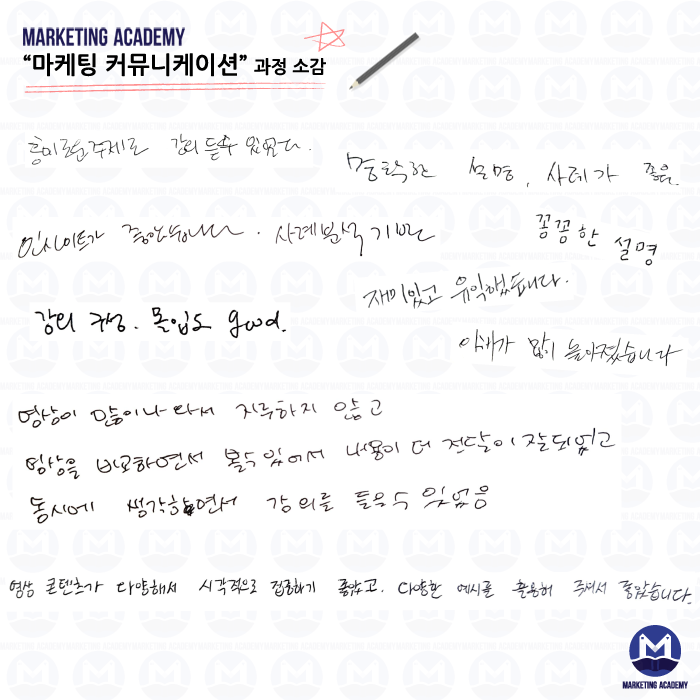 MARKETING ACADEMY
“마케팅 커뮤니케이션” 과정 소감
흥미로운 주제로 강의 들을수 있었다.
명확한 설명, 사례가 좋음.
인사이트가 좋았습니다. 사례분석 기반
꼼꼼한
설명
재미있고 유익했습니다.
강의 구성. 몰입도 good.
이해가 많이 높아졌습니다
영상이 많이 나와서 지루하지 않고
영상을 비교하면서 볼수 있어서 내용이 더 전달이 잘되었고
동시에 생각하면서 강의를 들을수 있었음
영상 콘텐츠가 다양해서 시각적으로 접하기 좋았고. 다양한 예시를 활용해 주셔서 좋았습니다.
MARKETING ACADEMY